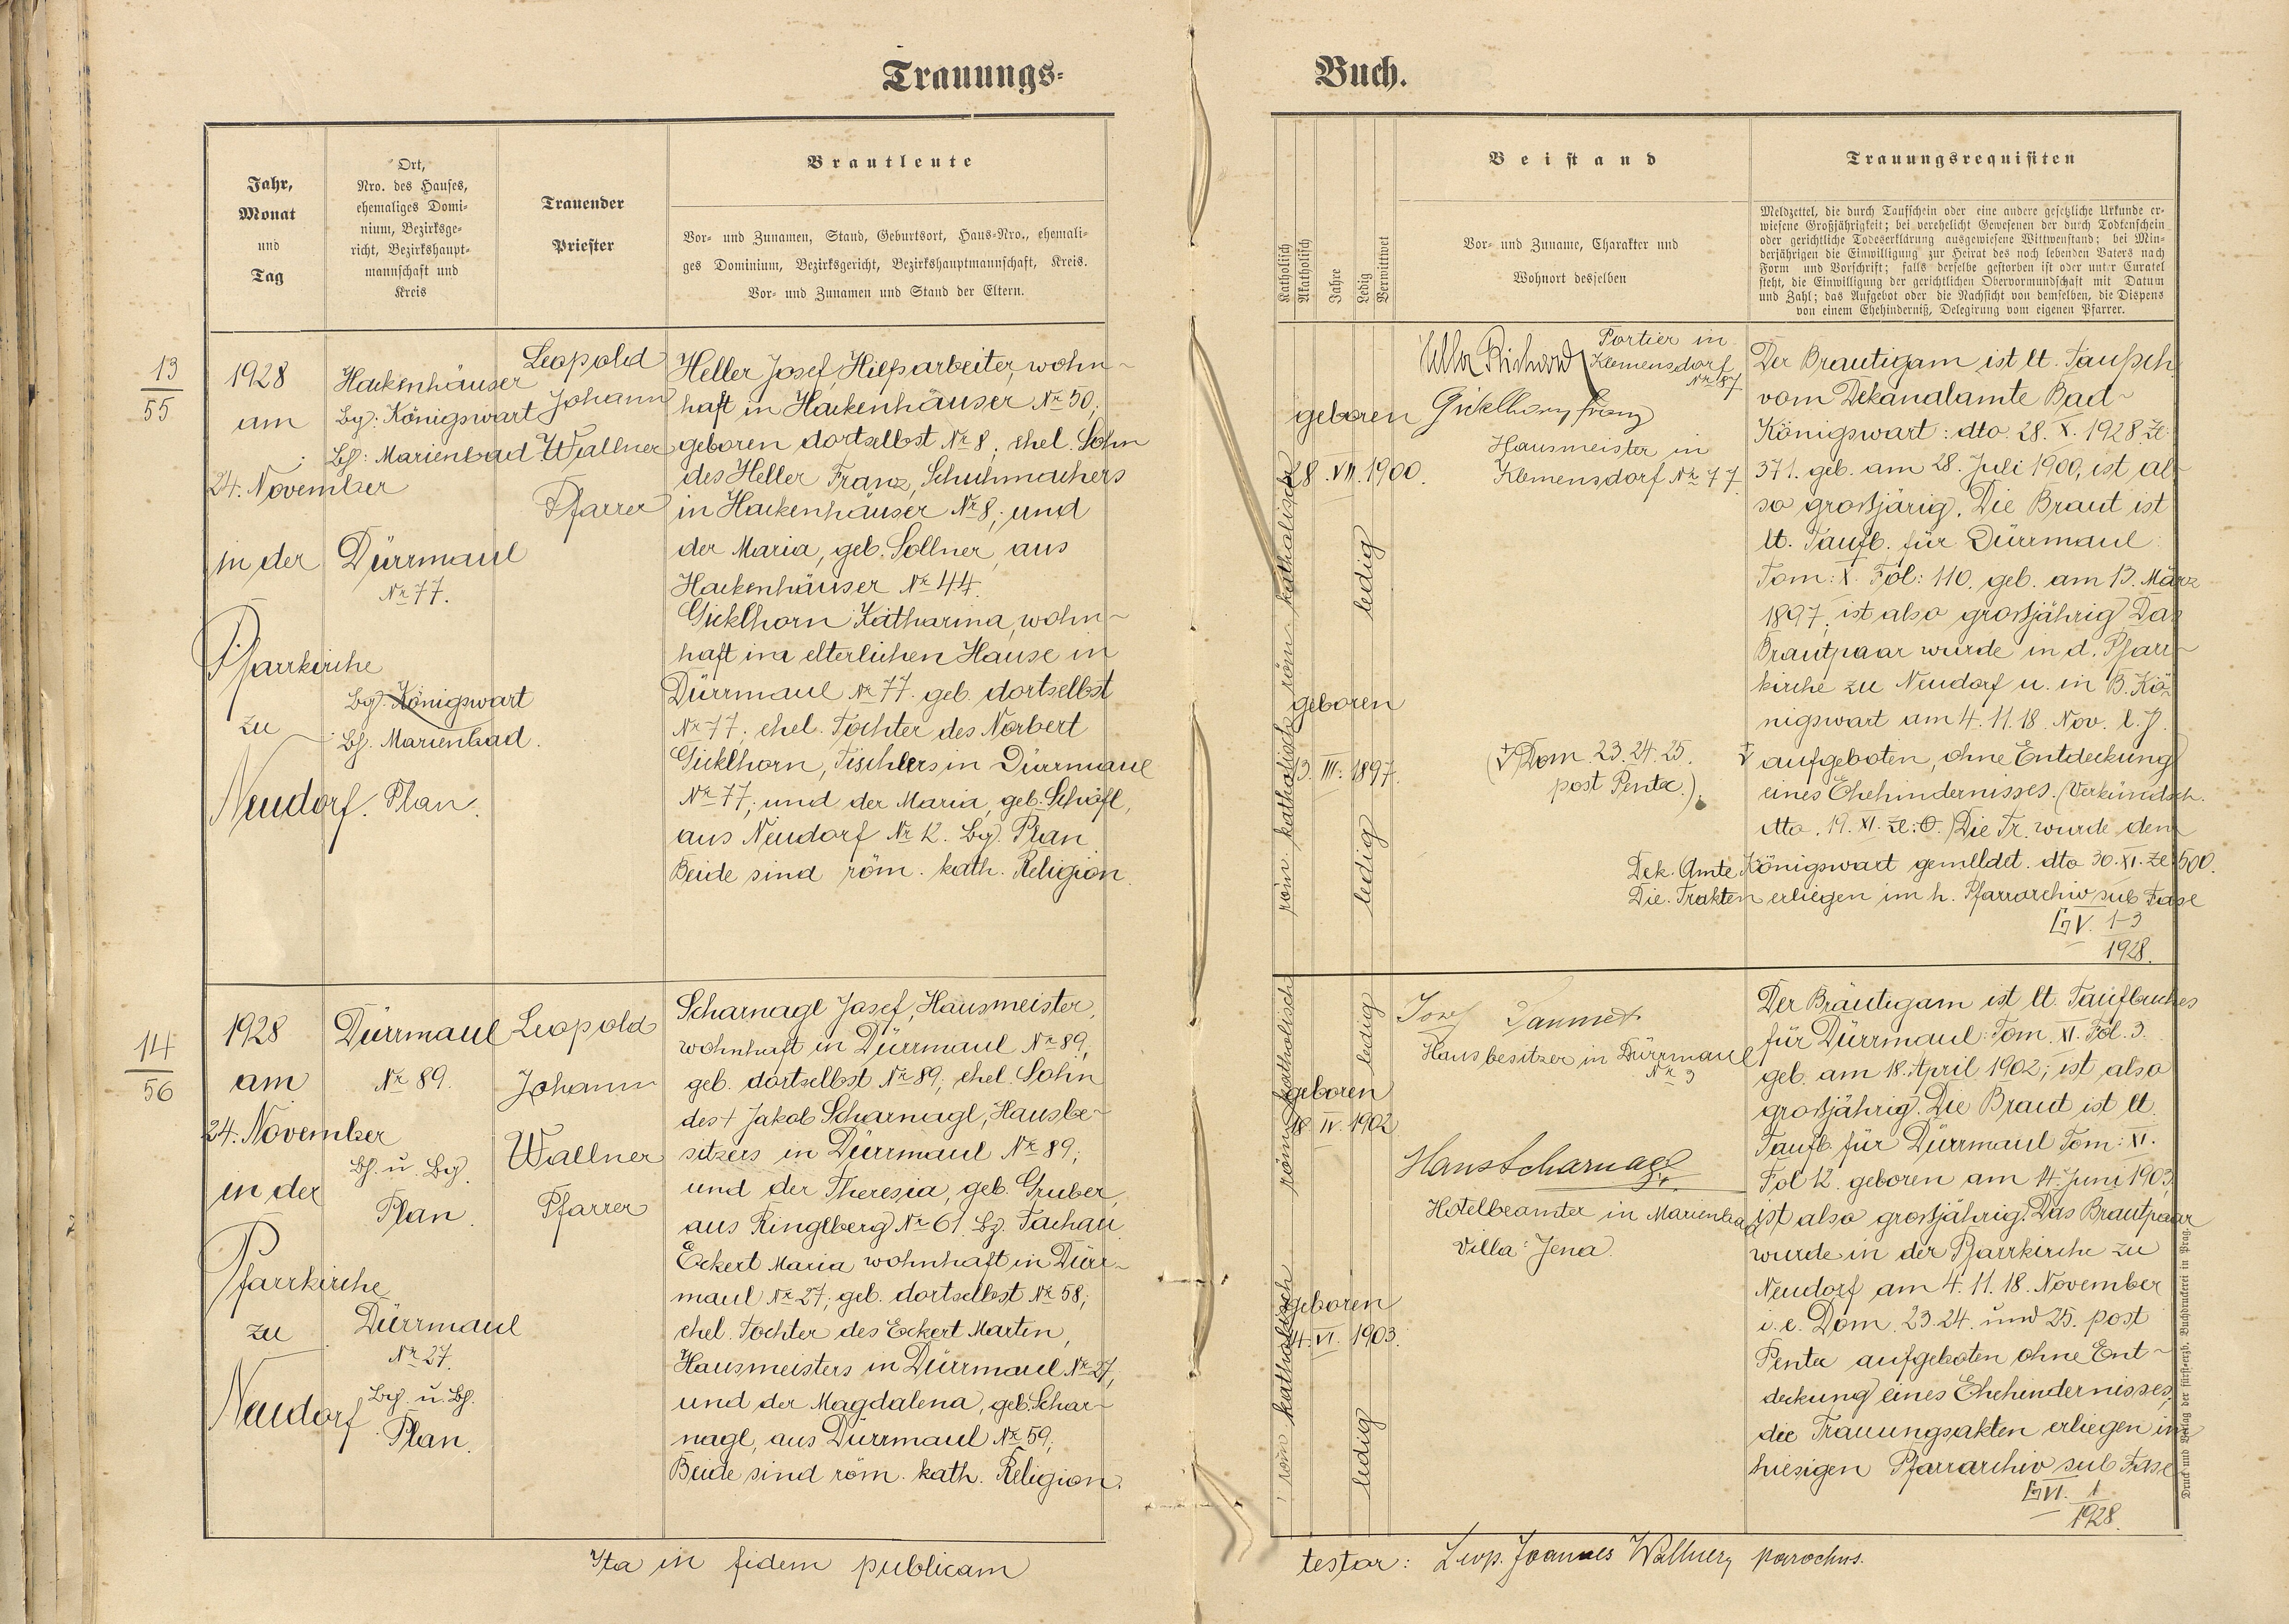 Trauungs=
Buch.
Jahr,
Monat
und
Tag
Ort,
Nro. des Hauses,
ehemaliges Domi-
nium, Bezirksge-
richt, Bezirkshaupt-
mannschaft und
Kreis
Trauender
Priester
Brautleute
Vor- und Zunamen, Stand, Geburtsort, Haus-Nro., ehemali-
ges Dominium, Bezirksgericht, Bezirkshauptmannschaft, Kreis.
Vor- und Zunamen und Stand der Eltern.
Katholisch
Akatholisch
Jahre
Ledig
Verwittwet
Beistand
Vor- und Zuname, Charakter und
Wohnort desselben
Trauungsrequisiten
Meldzettel, die durch Taufschein oder eine andere gesetzliche Urkunde er-
wiesene Großjährigkeit; bei verehelicht Gewesenen der durch Todtenschein
oder gerichtliche Todeserklärung ausgewiesene Wittwenstand; bei Min-
derjährigen die Einwilligung zur Heirat des noch lebenden Vaters nach
Form und Vorschrift; falls derselbe gestorben ist oder unter Curatel
steht, die Einwilligung der gerichtlichen Obervormundschaft mit Datum
und Zahl; das Aufgebot oder die Nachsicht von demselben, die Dispens
von einem Ehehinderniß, Delegirung vom eigenen Pfarrer.
13
55
1928
am
24. November
in der
Pfarrkirche
zu
Neudorf.
Hackenhäuser
Bg: Königswart
Bh: Marienbad
Dürrmaul
Nr 77.
Bg. Königswart
Bh. Marienbad.
Plan.
Leopold
Johann
Wallner
Pfarrer
Heller Josef, Hilfsarbeiter, wohn-
haft in Hackenhäuser Nr 50;
geboren dortselbst Nr 8, ehel. Sohn
des Heller Franz, Schuhmachers
in Hackenhäuser Nr 8; und
der Maria, geb. Sollner, aus
Hackenhäuser Nr 44.
Gicklhorn Katharina, wohn-
haft im elterlichen Hause in
Dürrmaul Nr 77. geb. dortselbst
Nr 77; ehel. Tochter des Norbert
Gicklhorn, Tischlers in Dürrmaul
Nr 77; und der Maria, geb. Schöfl,
aus Neudorf Nr 12. Bg. Plan
Beide sind röm. kath. Religion.
röm. katholisch
geboren
28. VII. 1900.
ledig
röm. katholisch
geboren
13. III. 1897.
ledig
Richard
Portier in
Klemensdorf
Nr 187
Gicklhorn Franz
Hausmeister in
Klemensdorf Nr 77
(Dom. 23. 24. 25.
post Pente.).
Der Brautigam ist lt. Taufsch.
vom Dekanalamte Bad-
Königswart: dto. 28. X. 1928 Zl:
371. geb. am 28. Juli 1900, ist al-
so großjärig. Die Braut ist
lt. Taufb. für Dürrmaul
Tom: X. Fol: 110. geb. am 13. März
1897, ist also großjährig Das
Brautpaar wurde in d. Pfarr-
kirche zu Neudorf u. in B. Kö-
nigswart am 4. 11. 18. Nov. l. J.
aufgeboten, ohne Entdeckung
eines Ehehindernisses. (Verkündsch.
dto. 19. XI. Zl: O.) Die Tr. wurde dem
Dek. Amte Königswart gemeldet. dto 30. XI. Zl 500.
Die. Trakten erliegen im h. Pfarrarchiv sub Fasc
G V. 1-3
1928.
14
56
1928
am
24. November
in der
Pfarrkirche
zu
Neudorf
Dürrmaul
Nr 89.
Bh. u. Bg.
Plan.
Dürrmaul
Nr 27.
Bg. u. Bh.
Plan.
Leopold
Johann
Wallner
Pfarrer
Scharnagl Josef, Hausmeister,
wohnhaft in Dürrmaul Nr 89,
geb. dortselbst Nr 89; ehel. Sohn
des + Jakob Scharnagl, Hausbe-
sitzers in Dürrmaul Nr 89;
und der Theresia, geb. Gruber,
aus Ringlberg Nr 61. Bz. Tachau
Eckert Maria wohnhaft in Dürr-
maul Nr 27; geb. dortselbst Nr 58;
ehel. Tochter des Eckert Martin,
Hausmeisters in Dürrmaul Nr 27,
und der Magdalena, geb. Schar-
nagl, aus Dürrmaul Nr 59;
Beide sind röm. kath. Religion.
röm. katholisch
geboren
18. IV. 1902
ledig
röm katholisch
geboren
14. VI. 1903.
ledig
Josef
Hausbesitzer in Dürrmaul
Nr 3
Hans Scharnagl
Hotelbeamter in Marienbad
Villa: Jena.
Der Bräutigam ist lt. Taufbuches
für Dürrmaul: Tom. XI. Fol. 3.
geb. am 18. April 1902; ist also
großjährig. Die Braut ist lt.
Taufb. für Dürrmaul Tom: XI.
Fol 12. geboren am 14. Juni 1903,
ist also großjährig. Das Brautpaar
wurde in der Pfarrkirche zu
Neudorf am 4. 11. 18. November
i. e. Dom. 23. 24. und 25. post
Pente aufgeboten ohne Ent-
deckung eines Ehehindernisses,
die Trauungsakten erliegen im
hiesigen Pfarrarchiv sub Fasc
G VI. 1
1928.
Ita in fidem publicam
testor: Leop. Joannes Wallner, parochus.
Druck und Verlag der fürsterzb. Buchdruckerei in Prag.